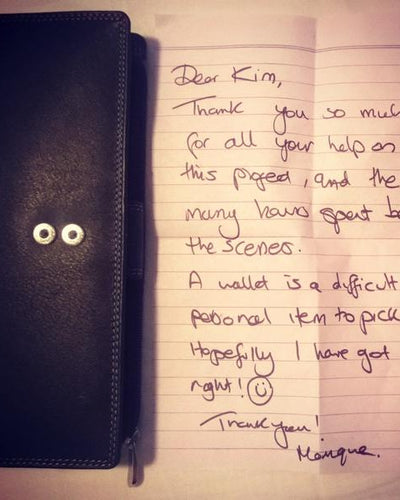 Dear Kim,
Thank you so much
for all your help on
this project, and the
many hours spent be
the scenes.
A wallet is a difficult
personal item to pick
Hopefully I have got
right! ☺
Thank you!